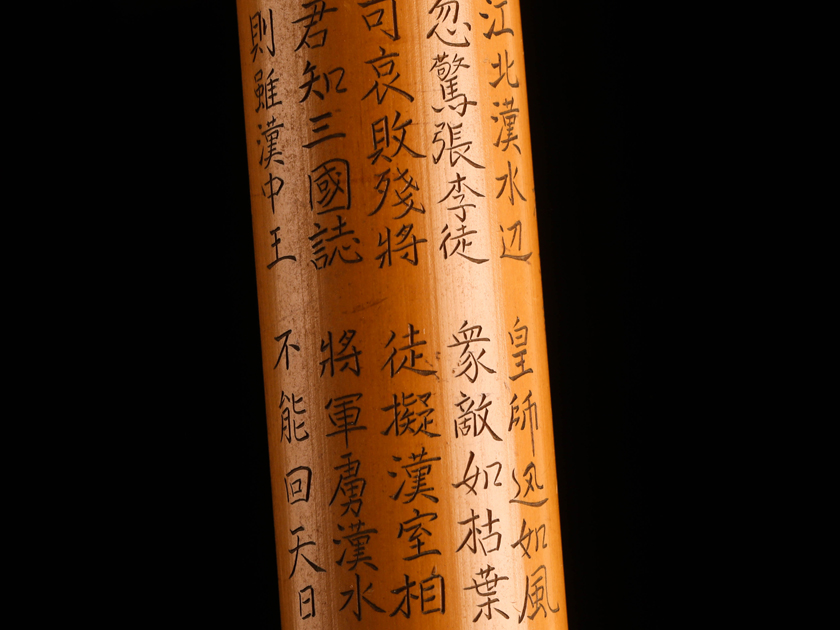 江北漢水辺 皇師迅如風
忽驚張李徒 衆敵如枯葉
可哀敗殘將 徒擬漢室相
君知三國誌 將軍虜漢水
則雖漢中王 不能回天日